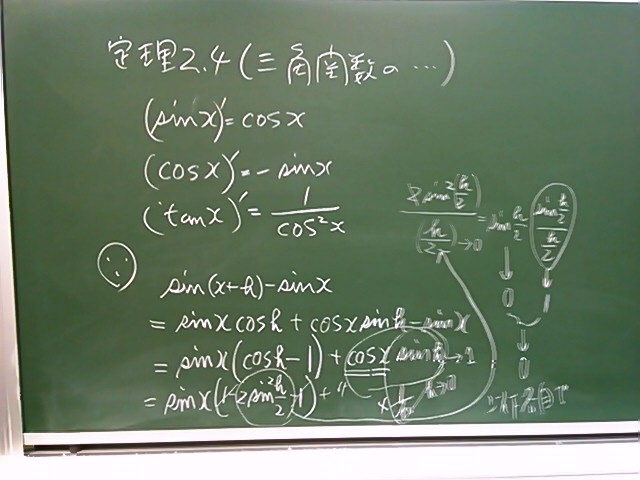 定理2.4(三角関数の…)
(sinx)'=cosx
(cosx)'=-sinx
(tanx)'= 1/cos²x
∵
sin(x+h)-sinx
= sinx cosh + cosx sinh - sinx
= sinx(cosh-1) + cosx sinh →1
h→0
= sinx(1-2sin² h/2 -1) + 〃
2sin²(h/2) / (h/2) →0 = sin h/2 · (sin h/2)/(h/2)
↓ ↓
0 1
↓
0